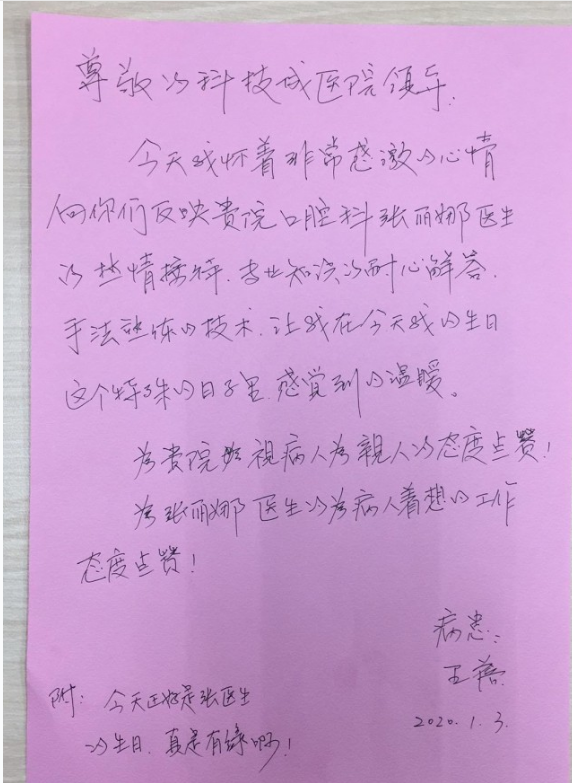 尊敬的科技城医院领导:
今天我怀着非常感激的心情
向你们反映贵院口腔科张丽娜医生
的热情接待.专业知识的耐心解答.
手法熟练的技术.让我在今天我的生日
这个特殊的日子里.感觉到的温暖。
为貴院 視病人为親人的态度点赞!
为张丽娜医生的为病人着想的工作
态度点赞!
病患:
王
2020.1.3.
附: 今天正好是张医生
的生日.真是有缘啊!